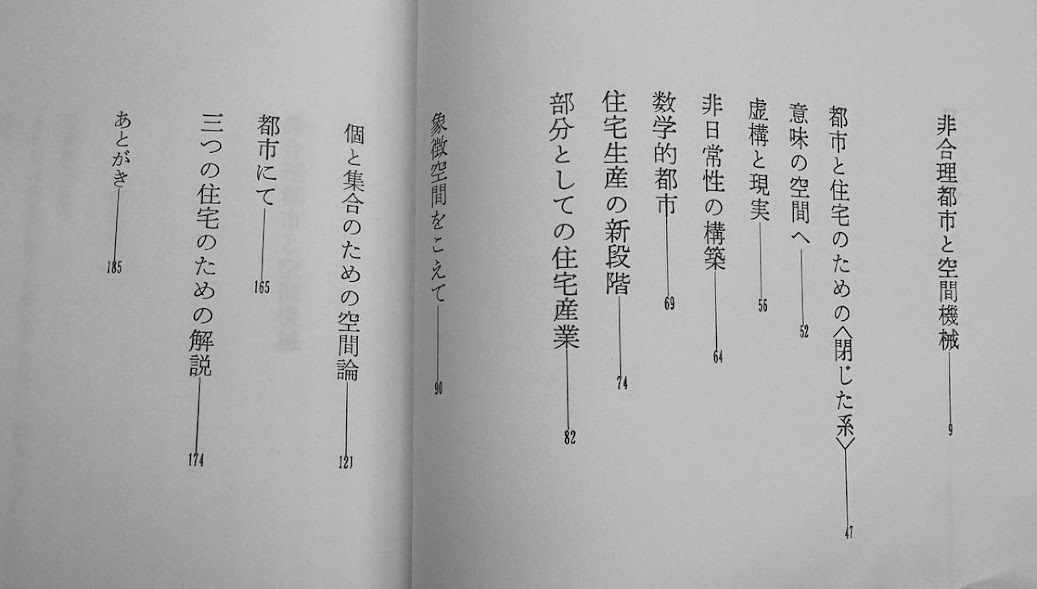 非合理都市と空間機械──9
都市と住宅のための〈閉じた系〉──47
意味の空間へ──52
虚構と現実──56
非日常性の構築──64
数学的都市──69
住宅生産の新段階──74
部分としての住宅産業──82
象徴空間をこえて──90
個と集合のための空間論──121
都市にて──165
三つの住宅のための解説──174
あとがき──185